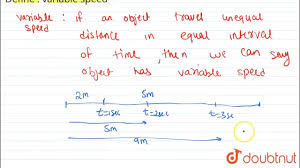 Define : variable speed
variable : if an object travel unequal
speed distance in equal interval
of time, then we can say
object has variable speed
2m 5m
t=1sec t=2sec t=3sec
5m
9m
doubtnut